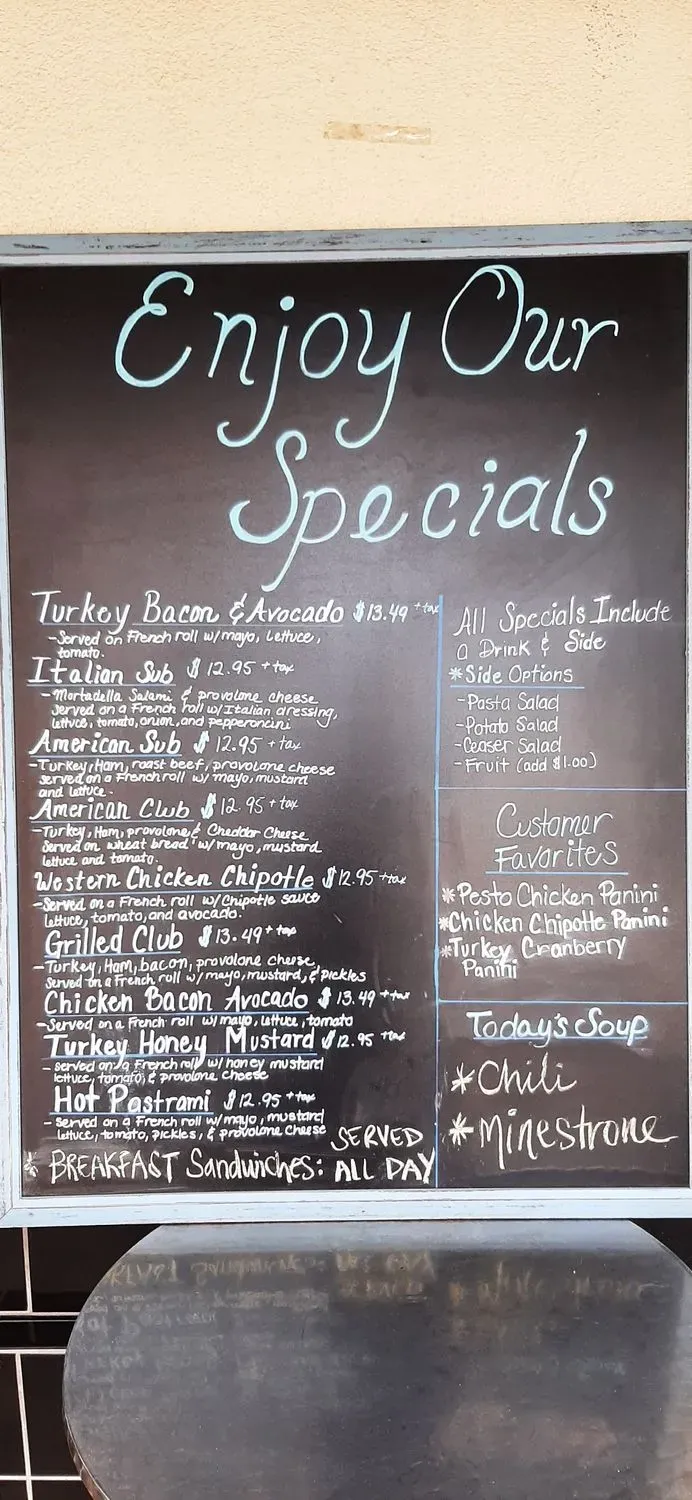 Enjoy Our
Specials
Turkey Bacon & Avocado $13.49 +tax
-Served on French roll w/mayo, lettuce,
tomato.
Italian Sub $12.95 +tax
-Mortadella Salami & provolone cheese
Served on a French roll w/Italian dressing,
lettuce, tomato, onion, and pepperoncini
American Sub $12.95 +tax
-Turkey, Ham, roast beef, provolone cheese
served on a French roll w/ mayo, mustard
and lettuce.
American Club $12.95 +tax
-Turkey, Ham, provolone & Cheddar Cheese
Served on wheat bread w/mayo, mustard
lettuce and tomato.
Western Chicken Chipotle $12.95 +tax
-Served on a French roll w/Chipotle sauce
lettuce, tomato, and avocado.
Grilled Club $13.49 +tax
-Turkey, Ham, bacon, provolone cheese,
Served on a French roll w/mayo, mustard, & pickles
Chicken Bacon Avocado $13.49 +tax
-Served on a French roll w/ mayo, lettuce, tomato
Turkey Honey Mustard $12.95 +tax
- served on a French roll w/ honey mustard
lettuce, tomato, & provolone cheese
Hot Pastrami $12.95 +tax
- served on a French roll w/mayo, mustard
lettuce, tomato, pickles, & provolone cheese
* BREAKFAST Sandwiches: SERVED
ALL DAY
All Specials Include
a Drink & Side
*Side Options
-Pasta Salad
-Potato Salad
-Ceaser Salad
-Fruit (add $1.00)
Customer
Favorites
*Pesto Chicken Panini
*Chicken Chipotle Panini
*Turkey Cranberry
Panini
Today's Soup
*Chili
*Minestrone